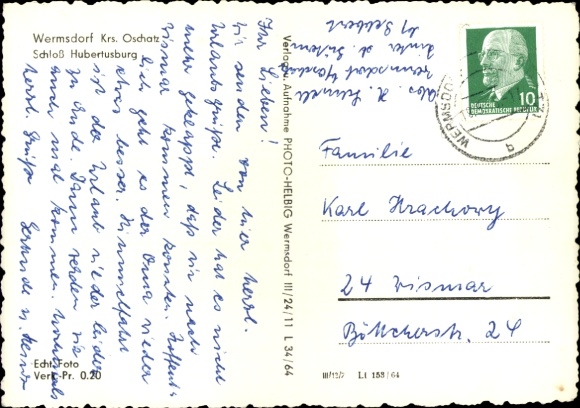 Wermsdorf Krs. Oschatz
Schloß Hubertusburg
Ihr Lieben!
Wir senden von hier herzl.
Urlaubsgrüße. Leider hat es nicht
mehr geklappt, daß wir nach
Wismar kommen konnten. Hoffent-
lich geht es der Oma wieder
etwas besser. Himmelfahrt
ist der Urlaub wieder leider
zu Ende. Dann werden Sie
auch mal kommen.
Herzl. Grüße
Echt Foto
Verk.-Pr. 0.20
Verlag u. Aufnahme PHOTO-HELBIG Wermsdorf III/24/11 L 34/64
Abs. H.
Wermsdorf
DEUTSCHE
DEMOKRATISCHE REPUBLIK
10
WERMSDORF
Familie
Karl Hrachowy
24 Wismar
Böttcherstr. 24
Lt 153/64